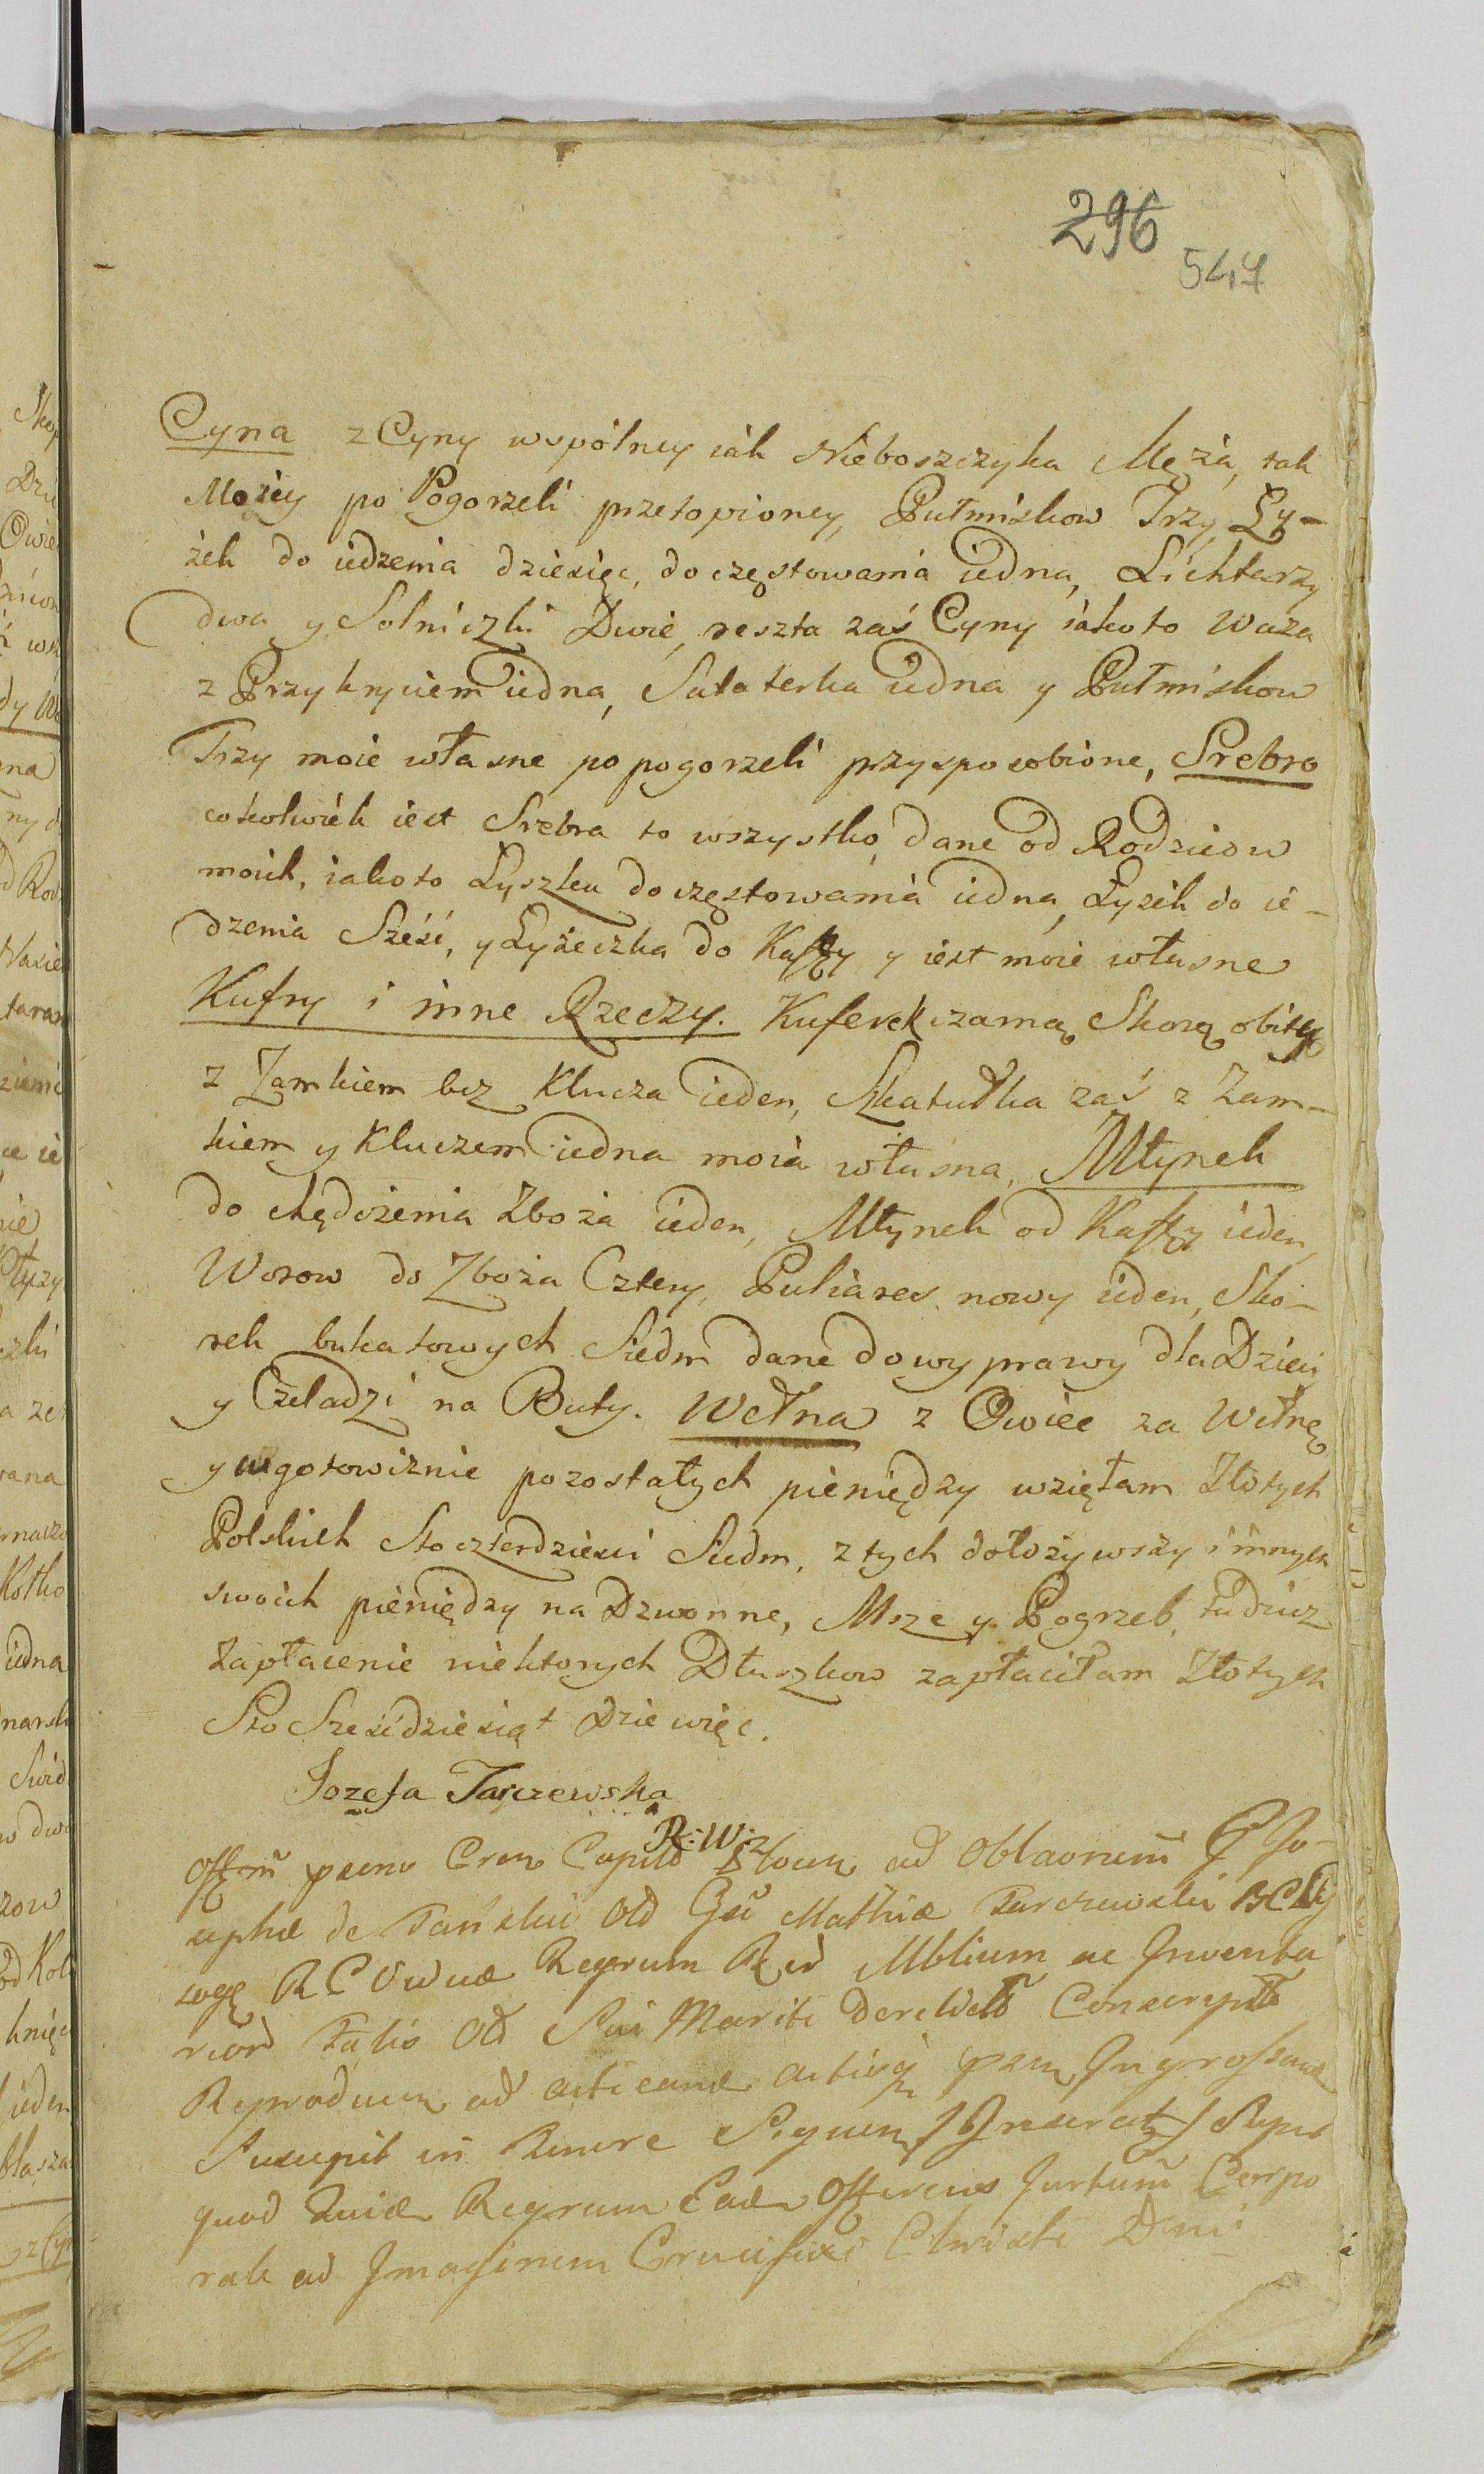 296
547
Cyna z Cyny wspolney iak Nieboszczyka Męża, tak
Moiey po Pogorzeli przetopioney, Pułmiskow Trzy, Ły-
żek do iedzenia dziesięc, do częstowania iedna, Lichtarzy
dwa y Solniczki Dwie, reszta zaś Cyny iakoto Waza
z Przykryciem iedna, Salaterka iedna y Pułmiskow
Trzy moie własne po pogorzeli przysposobione, Srebro
cokolwiek iest Srebra to wszystko dane od Rodzicow
moich, iakoto Łyszka do częstowania iedna, Łyżek do ie-
dzenia Sześć, y Łyżeczka do Kaffy y iest moie własne
Kufry i inne Rzeczy. Kuferek czarną Skorą obity
z Zamkiem bez Klucza ieden, Szkatułka zaś z Zam-
kiem y Kluczem iedna moia własna, Młynek
do chędożenia Zboża ieden, Młynek od Kaffy ieden,
Worow do Zboża Cztery, Puliares nowy ieden, Sko-
rek bukatowych Siedm dane do wyprawy dla Dzieci
y Czeladzi na Buty. Wełna z Owiec za Wełnę
y w gotowiznie pozostałych pieniędzy wziętam Złotych
Polskich Sto czterdzieści Siedm, z tych dołożywszy i innych
swoich pieniędzy na Dzwonne, Msze y Pogrzeb, tudzież
Zapłacenie niektorych Dłuszkow zapłaciłam Złotych
Sto Sześćdziesiąt Dziewięc.
Jozefa Tarczewska
R: W:
ad
de Tański Mathiæ Tarczewski
Regrum ac Inventa
Sui Mariti
ad
Suscepit in
quod Regrum Offerens Corpo
rale ad Imaginem Crucifixi Christi Dni